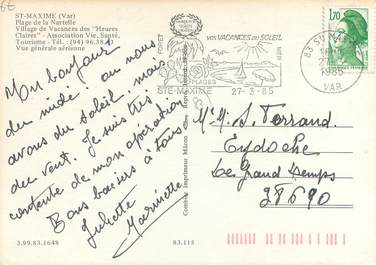 66
ST-MAXIME (Var)
Plage de la Nartelle
Village de Vacances des "Heures
Claires" - Association Vie, Santé,
Tourisme - Tél. : (94) 96.38.
Vue générale aérienne
Mon bonjour
du midi, ou nous
avons du soleil mais
du vent. Je suis très
contente de mon opération
Bons baisers à tous
Juliette
Marinette
3.99.83.1648
83.115
Combier Imprimeur Mâcon
FORET
VOS VACANCES AU SOLEIL
PLAGES
STE-MAXIME
27-3-85
83 STE MAXIME
1985
VAR
1,70
M. M. S. Terrand
Eydoche
Le Grand Lemps
38690